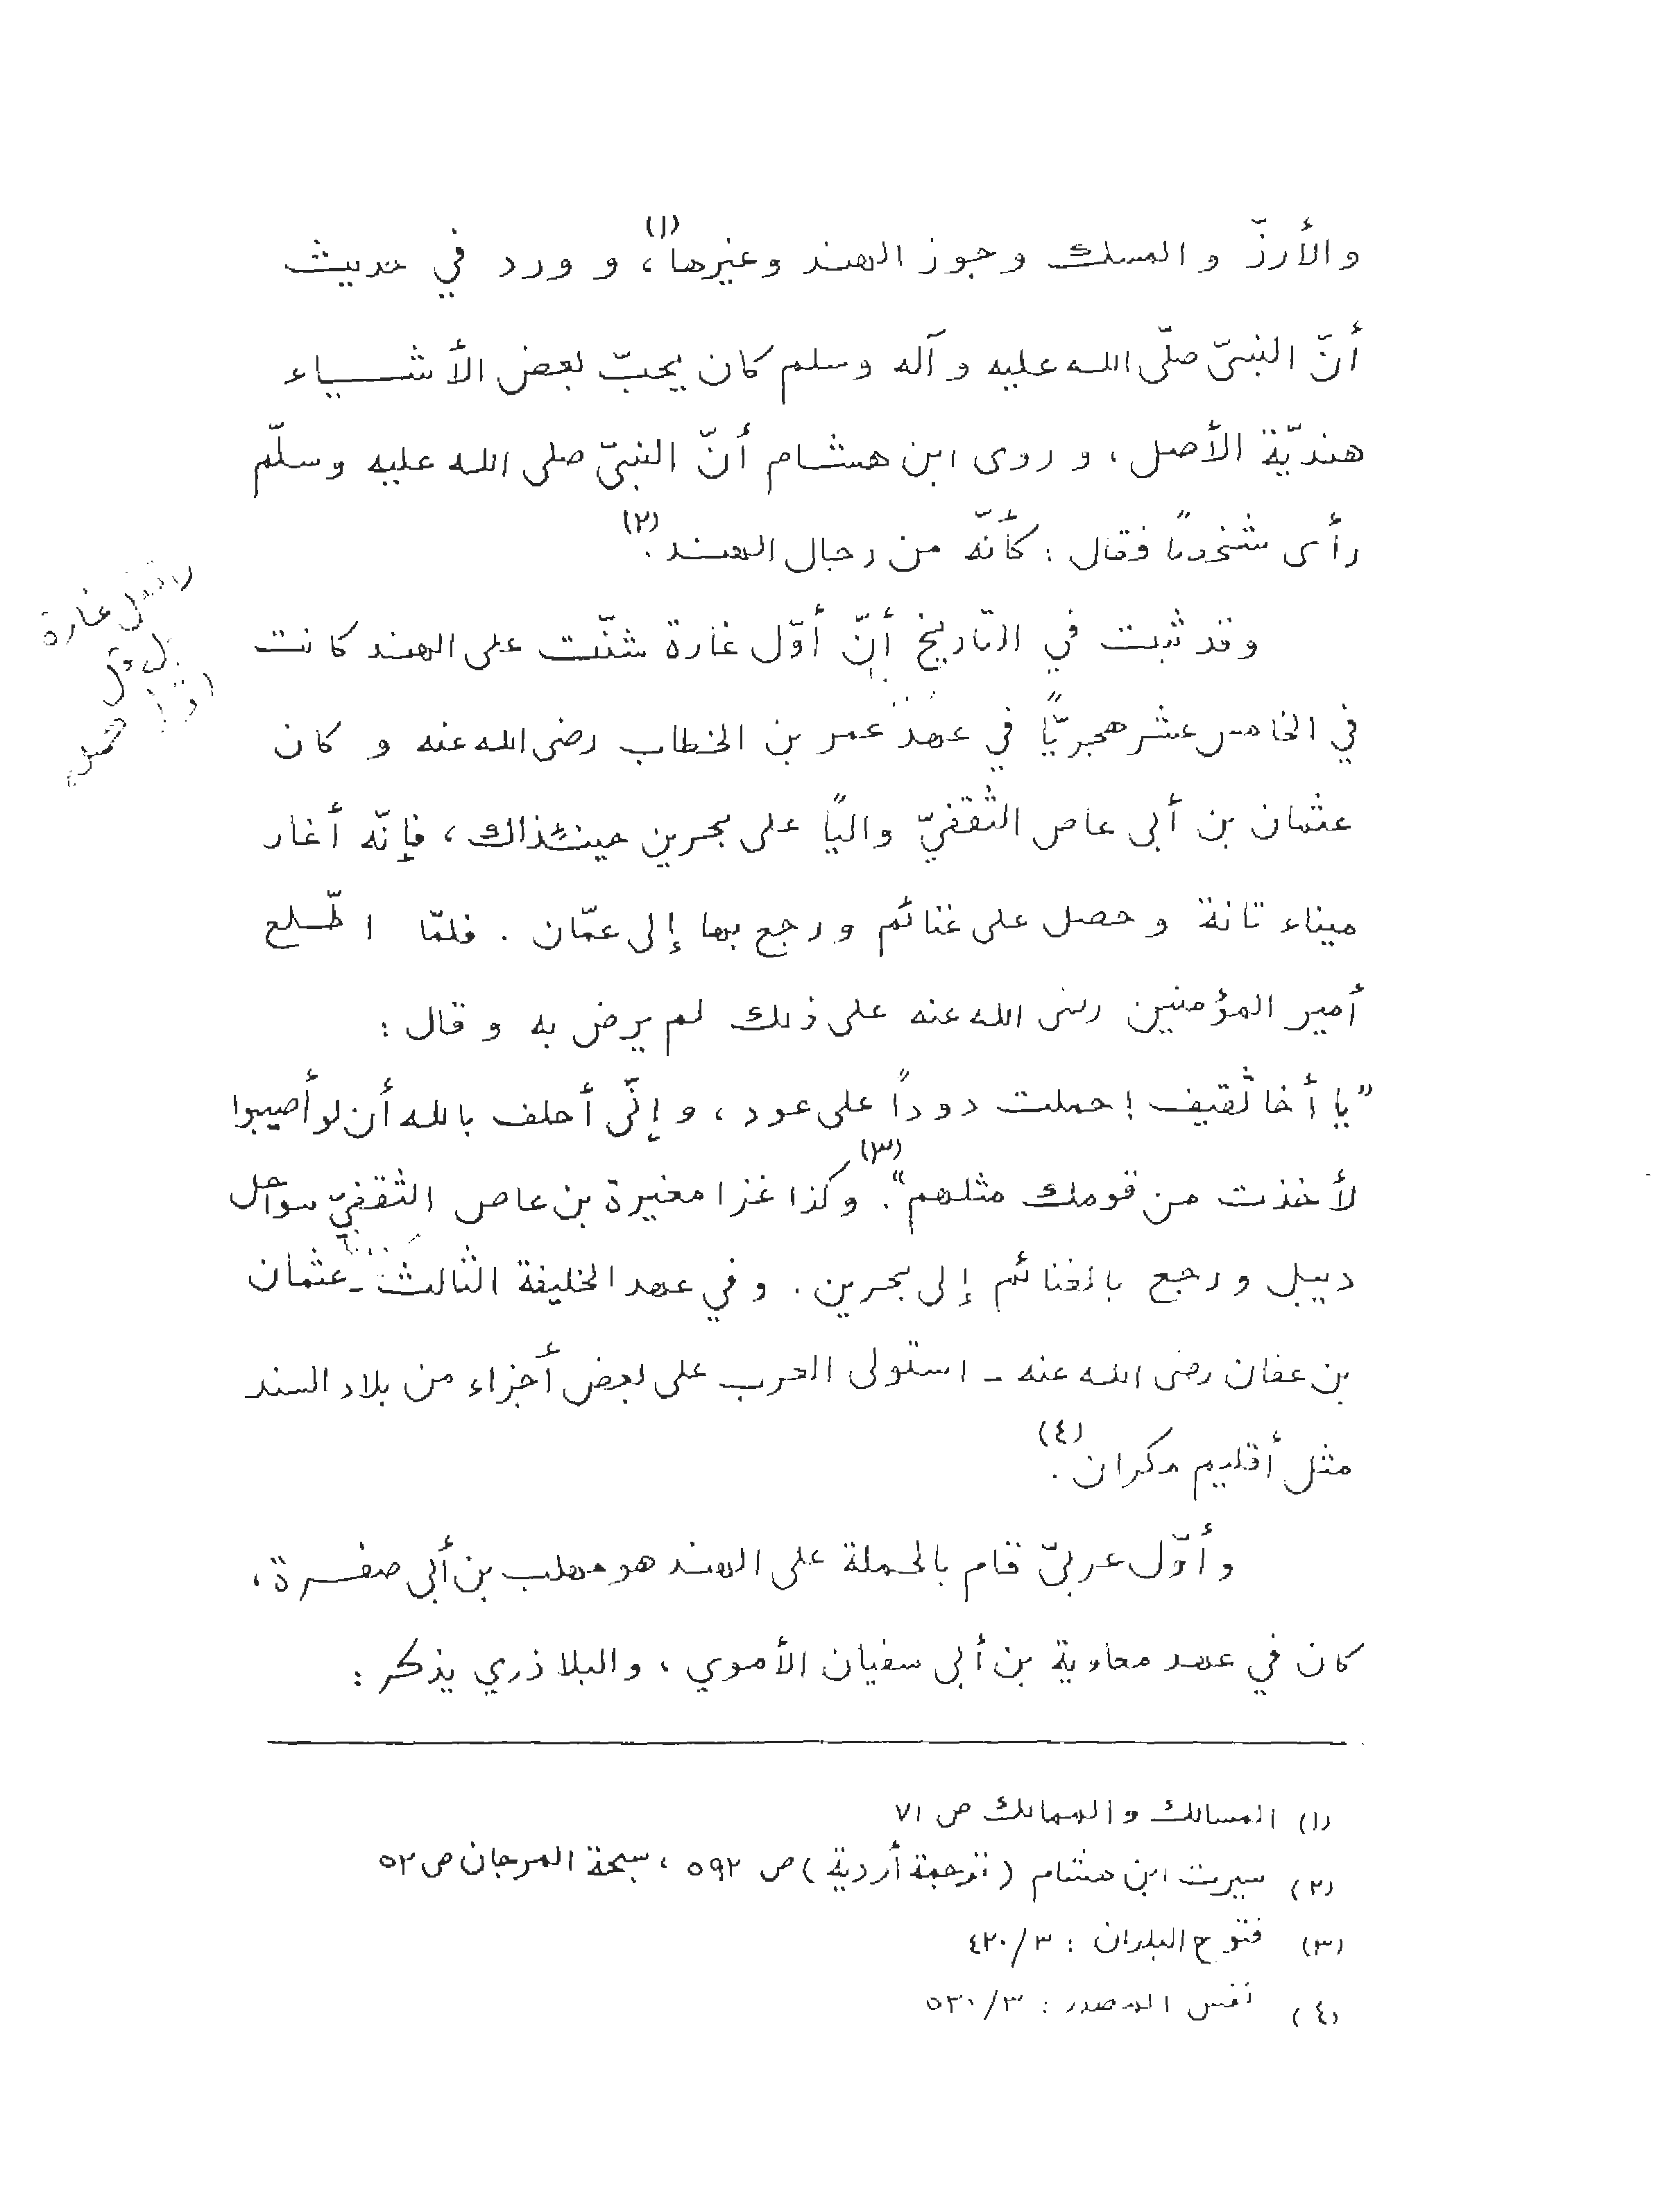 والأرزّ والمسك وجوز الهند وغيرها(١)، وورد في حديث
أنّ النبيّ صلّى الله عليه وآله وسلم كان يحبّ بعض الأشياء
هنديّة الأصل، وروى ابن هشام أنّ النبيّ صلى الله عليه وسلّم
رأى شخصًا فقال: كأنّه من رجال الهند.(٢)
وقد ثبت في التاريخ أنّ أوّل غارة شنّت على الهند كانت
في الخامس عشر هجريًّا في عهد عمر بن الخطاب رضى الله عنه وكان
عثمان بن أبى عاص الثقفيّ واليًا على بحرين حينئذاك، فإنّه أغار
ميناء تانة وحصل على غنائم ورجع بها إلى عمّان. فلمّا اطّلع
أمير المؤمنين رضى الله عنه على ذلك لم يرض به وقال:
"يا أخا ثقيف! حملت دوداً على عود، وإنّى أحلف بالله أن لو أصيبوا
لأخذت من قومك مثلهم".(٣) وكذا غزا مغيرة بن عاص الثقفيّ سواحل
ديبل ورجع بالغنائم إلى بحرين. وفي عهد الخليفة الثالث - عثمان
بن عفان رضى الله عنه - استولى العرب على بعض أجزاء من بلاد السند
مثل أقليم مكران.(٤)
وأوّل عربيّ قام بالحملة على الهند هو مهلب بن أبى صفرة،
كان في عهد معاوية بن أبى سفيان الأموي، والبلاذري يذكر:
(١) المسالك والممالك ص ٧١
(٢) سيرت ابن هشام (ترجمة أردية) ص ٥٩٢، سبحة المرجان ص ٥٢
(٣) فتوح البلدان: ٣/٤٢٠
(٤) نفس المصدر: ٣/٥٣٠
لا تقل غارة
بل قل